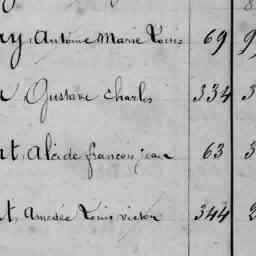 ry, Antoine Marie Louis 69
Gustave Charles 334 3
nt, Alcide françois jean 63 3
t, Amedée Louis victor 344 2